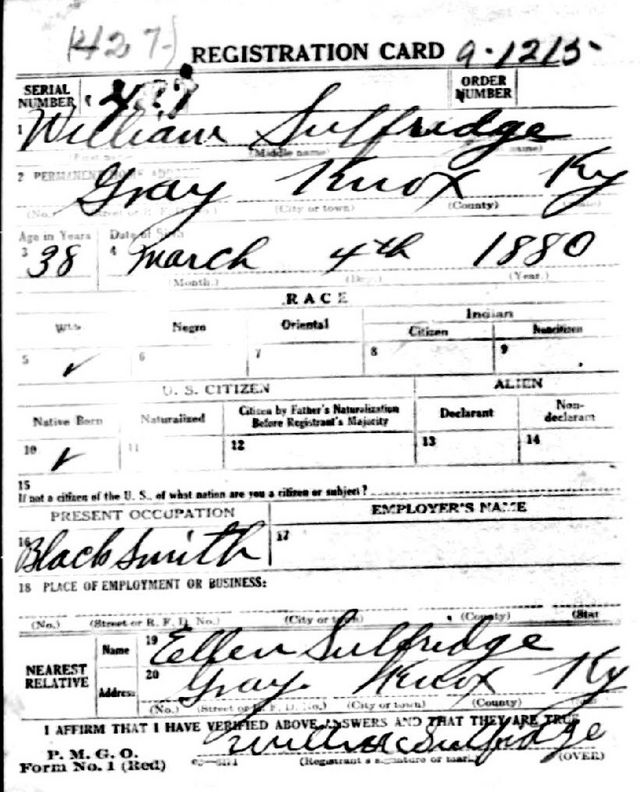 (427) REGISTRATION CARD 9-1215
SERIAL NUMBER 427 ORDER NUMBER
1 William Sulfridge
(Middle name) name)
2 PERMANENT HOME ADDRESS
Gray Knox Ky
(No.) (Street or R. F. D. No.) (City or town) (County) (State)
Age in Years Date of Birth
3 38 4 March 4th 1880
(Month.) (Day.) (Year.)
RACE
White Negro Oriental Indian
Citizen Noncitizen
5 ✓ 6 7 8 9
U. S. CITIZEN ALIEN
Native Born Naturalized Citizen by Father's Naturalization Before Registrant's Majority Declarant Non-declarant
10 ✓ 11 12 13 14
15
If not a citizen of the U. S., of what nation are you a citizen or subject?
PRESENT OCCUPATION EMPLOYER'S NAME
16 Blacksmith 17
18 PLACE OF EMPLOYMENT OR BUSINESS:
(No.) (Street or R. F. D. No.) (City or town) (County) (State
NEAREST RELATIVE Name 19 Ellen Sulfridge
Address 20 Gray Knox Ky
(No.) (Street or R. F. D. No.) (City or town) (County)
I AFFIRM THAT I HAVE VERIFIED ABOVE ANSWERS AND THAT THEY ARE TRUE
P. M. G. O.
Form No. 1 (Red) William Sulfridge
(Registrant's signature or mark) (OVER)